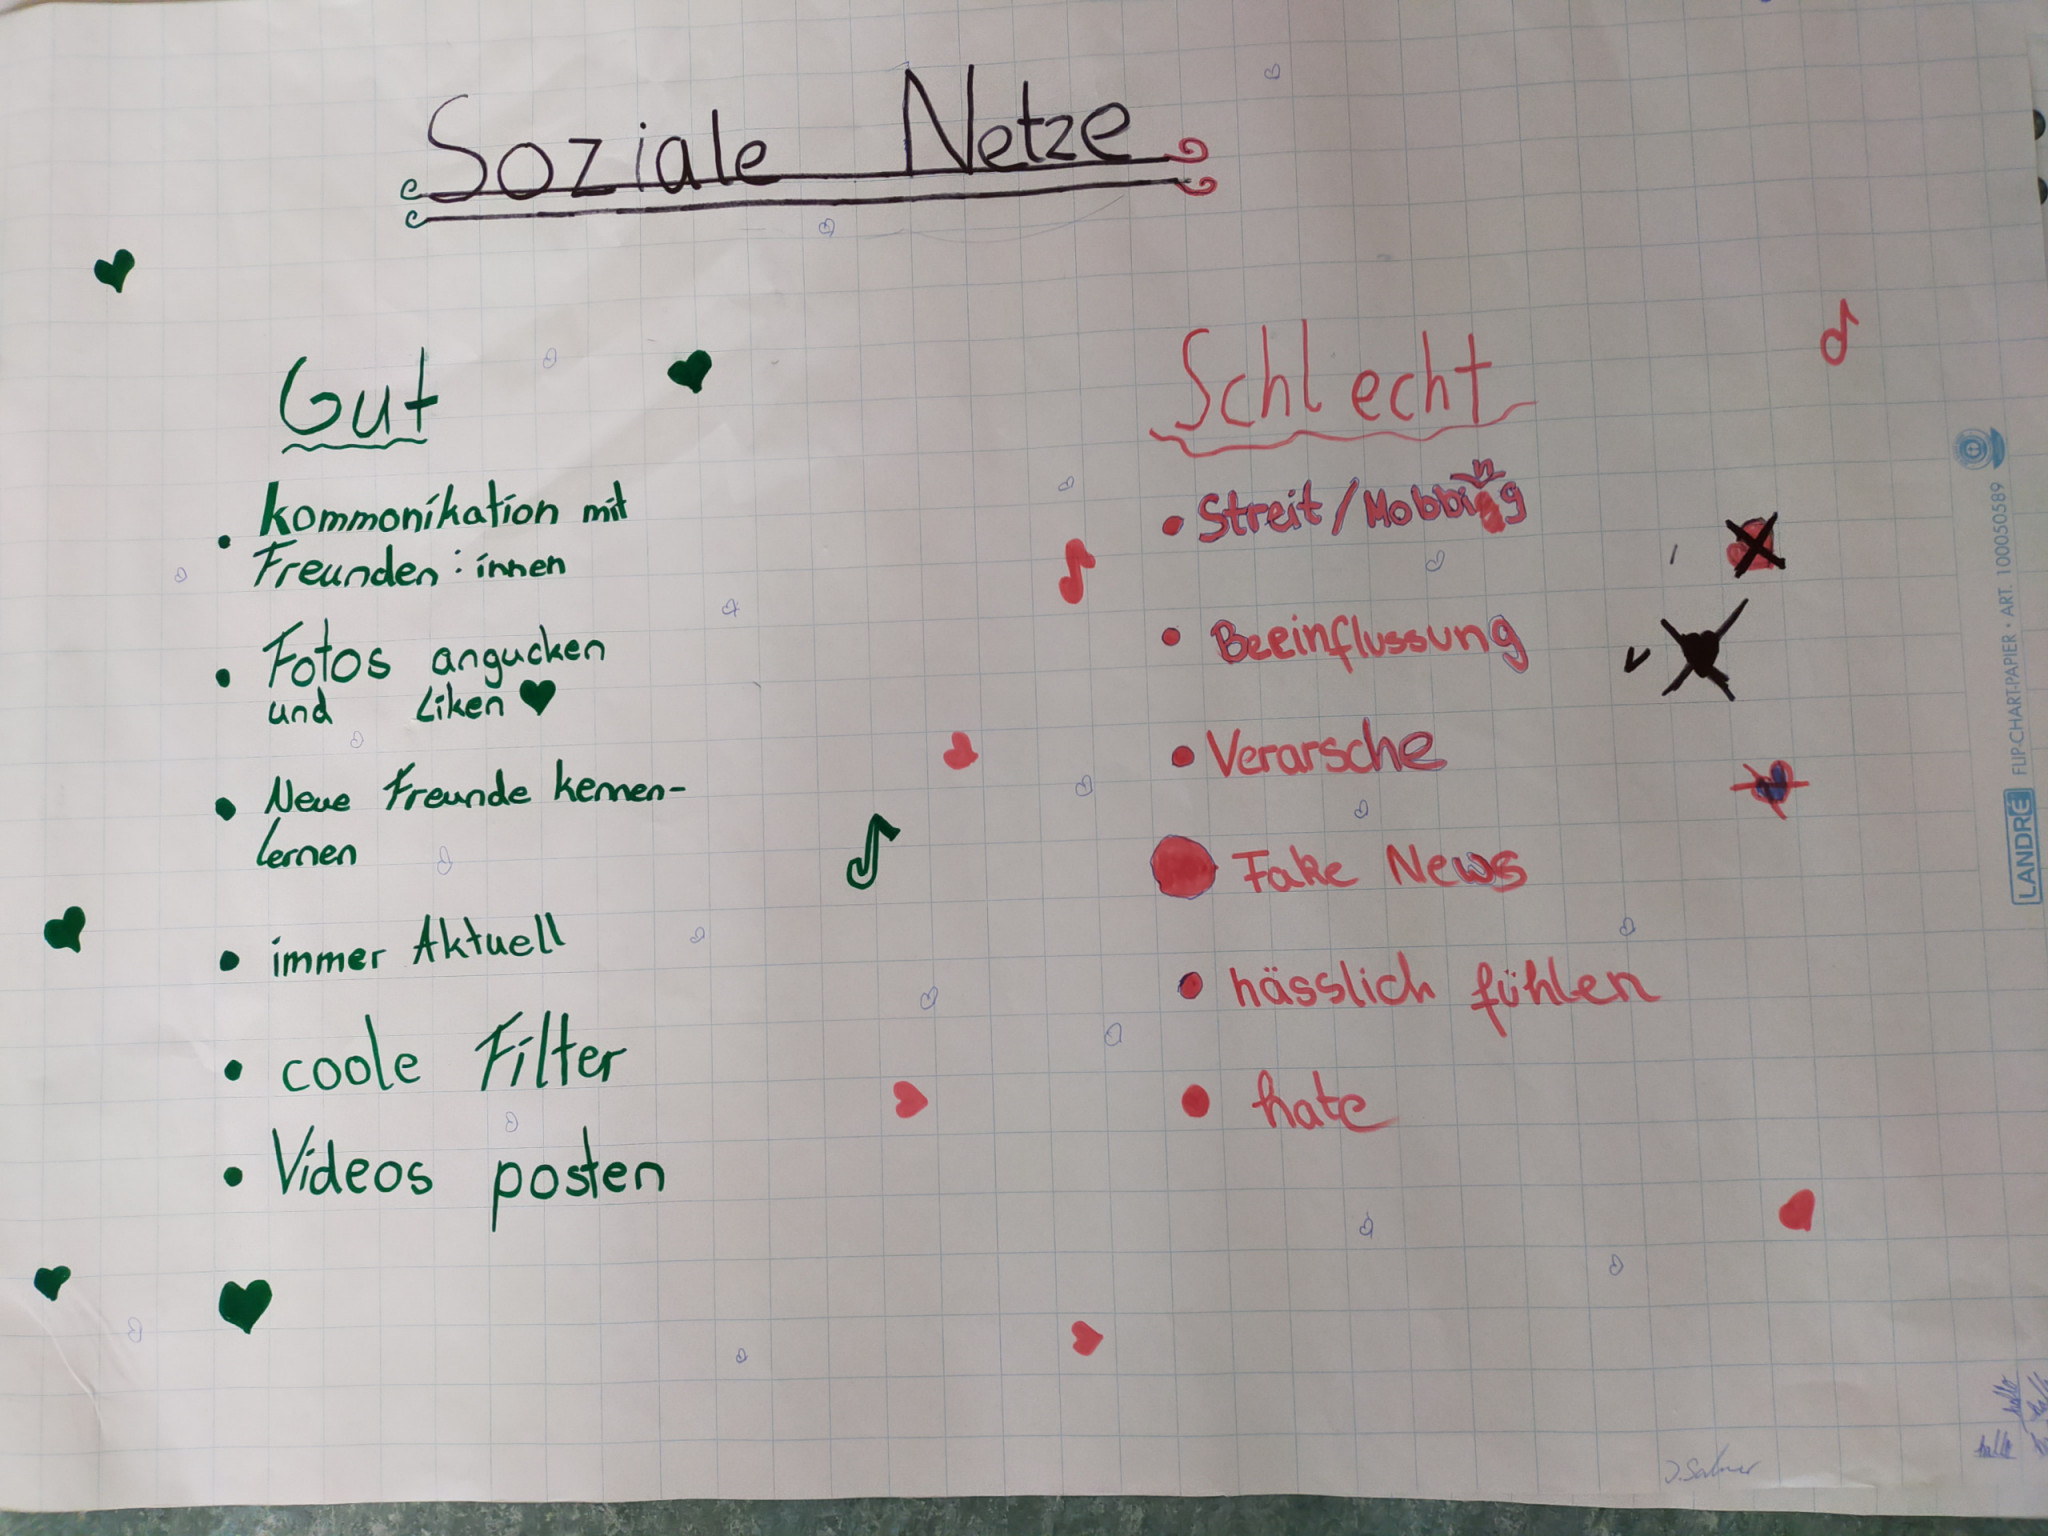 Soziale Netze
Gut
• kommonikation mit
Freunden:innen
• Fotos angucken
und Liken ♥
• Neue Freunde kennen-
lernen
• immer Aktuell
• coole Filter
• Videos posten
Schlecht
• Streit/Mobbing
• Beeinflussung
• Verarsche
• Fake News
• hässlich fühlen
• hate
LANDRÉ FLIP-CHART-PAPIER • ART. 100050589
hallo
hallo